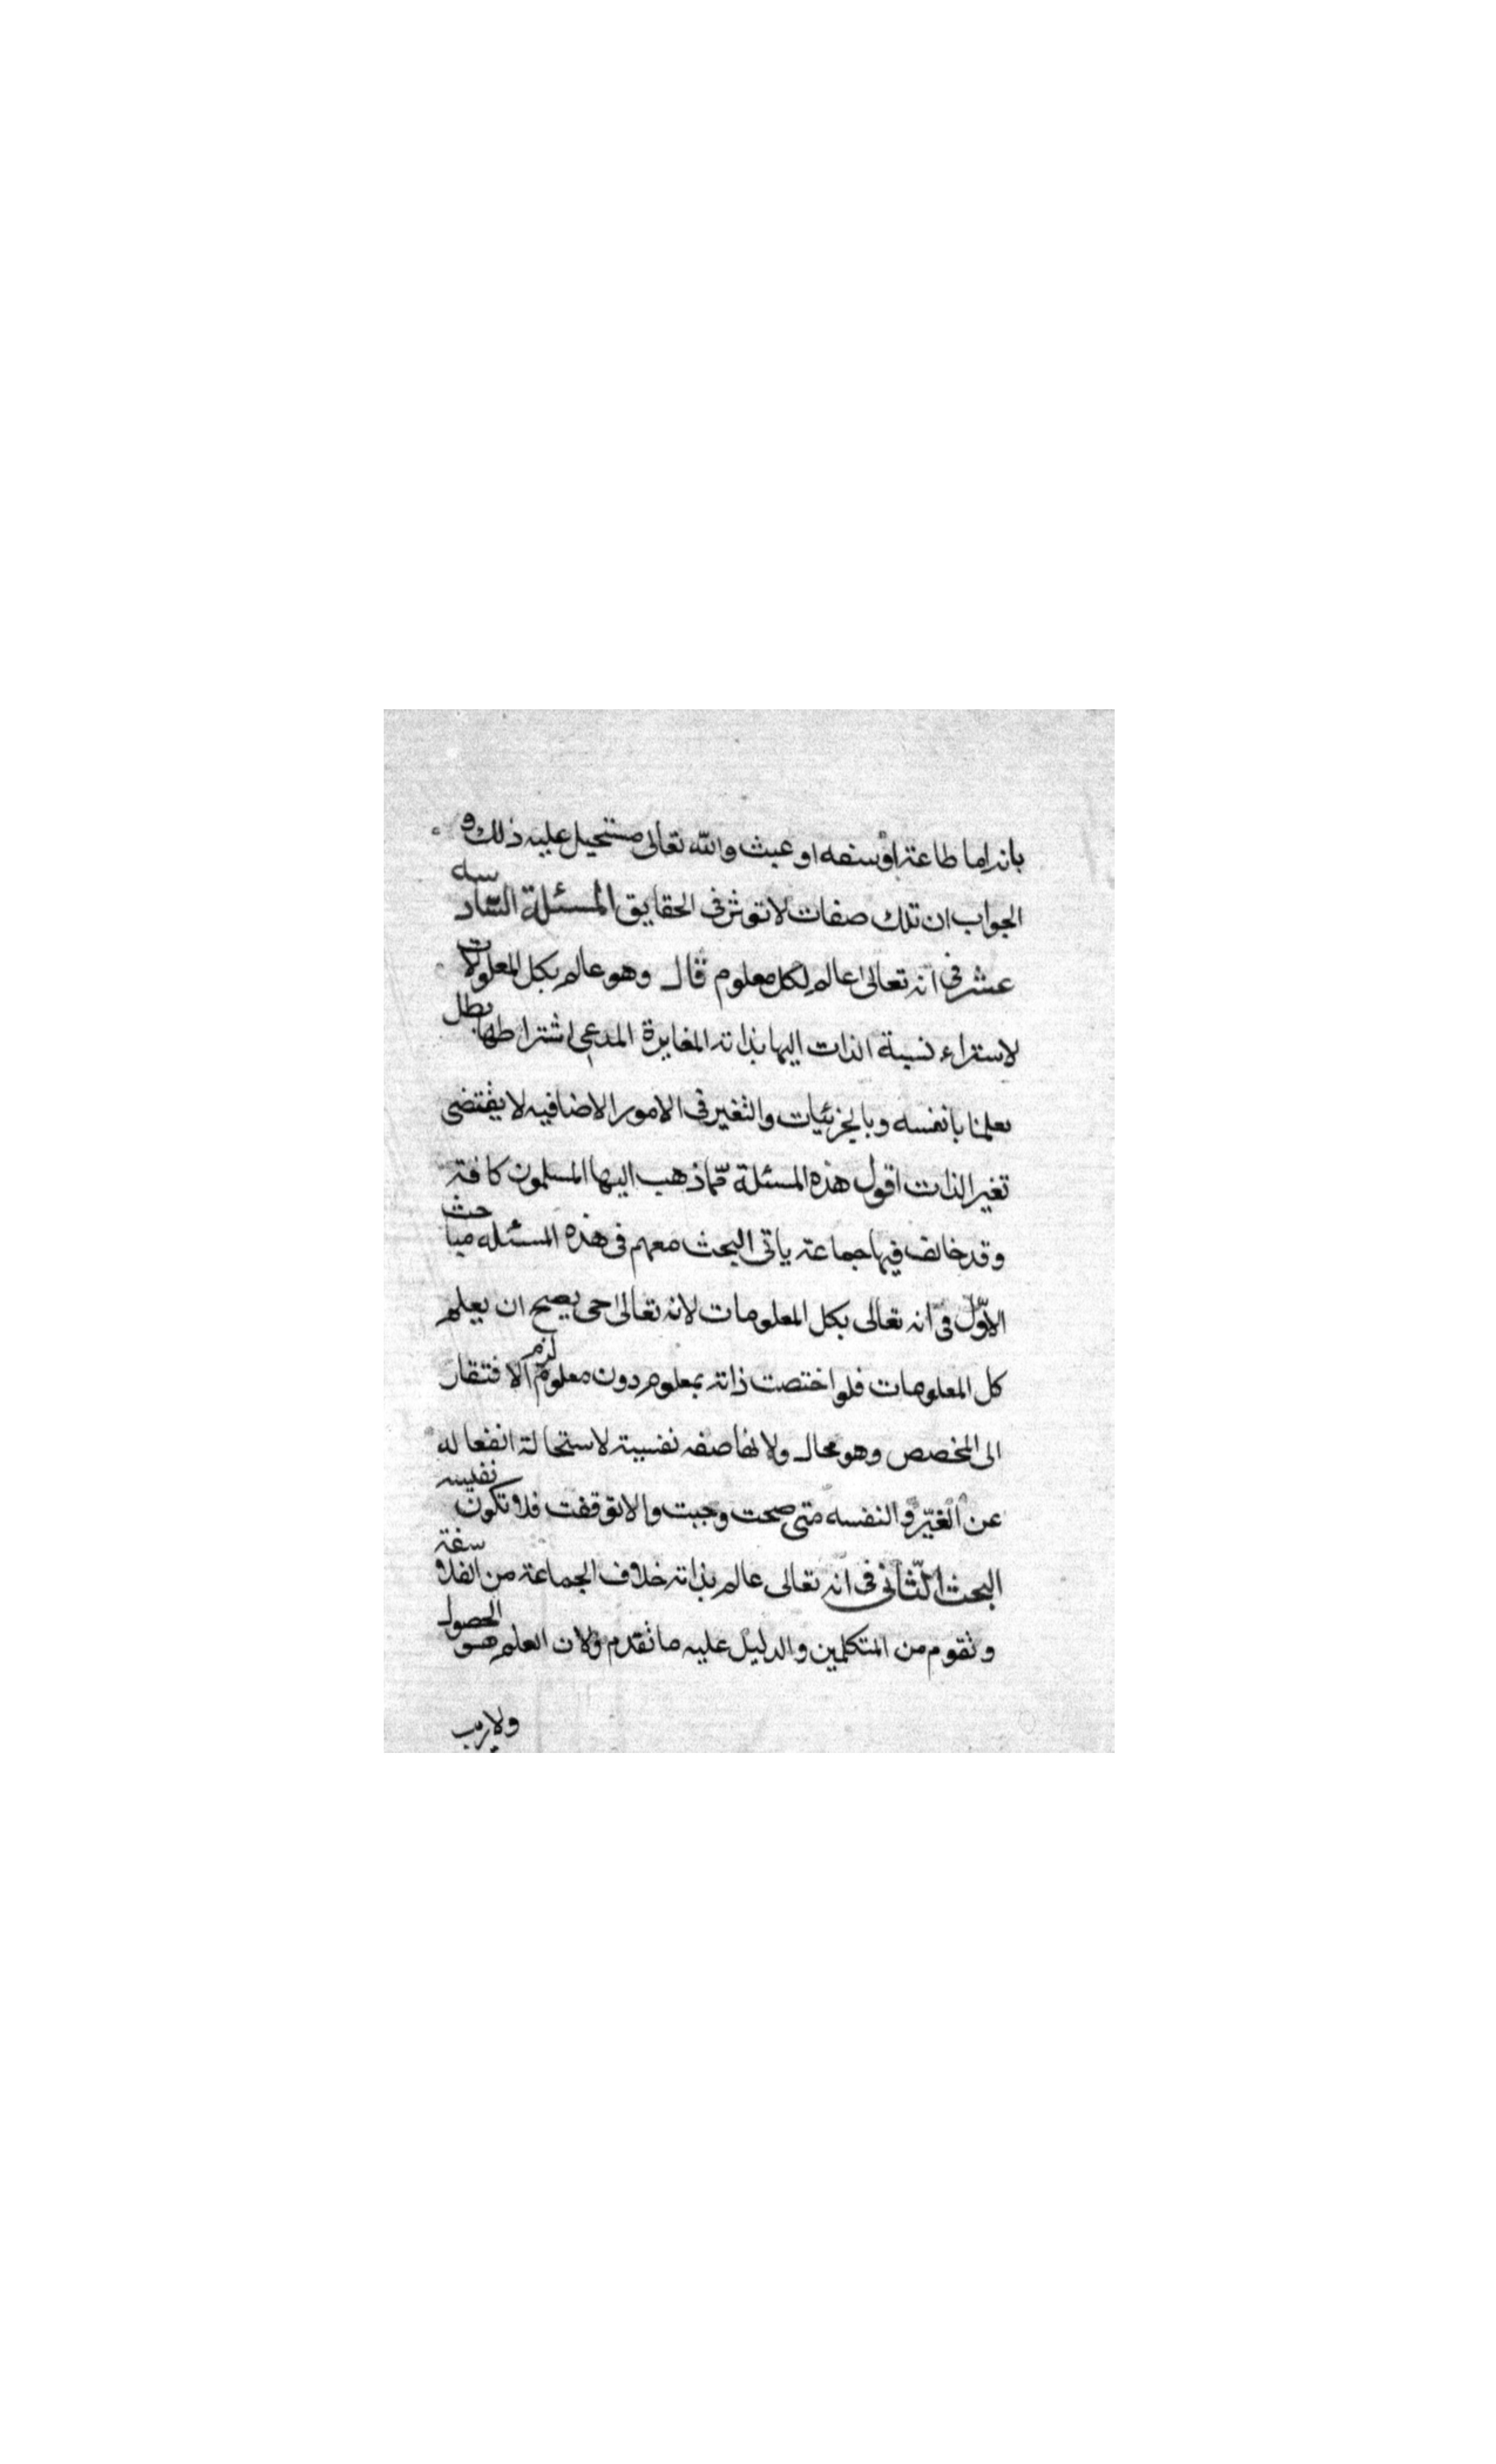 بانه اما طاعة او سفه او عبث والله تعالى مستحيل عليه ذلك و
الجواب ان تلك صفات لا توثر فى الحقايق المسئلة السادسه
عشر فى انه تعالى عالم لكل معلوم قال وهو عالم بكل المعلومات
لاستواء نسبة الذات اليها بذاته المغايرة المدعى اشتراطها يطل
بعلمنا بانفسه وبالجزئيات والتغير فى الامور الاضافيه لا يقتضى
تغير الذات اقول هذه المسئلة مما ذهب اليها المسلمون كافة
وقد خالف فيها جماعة ياتى البحث معهم فى هذه المسئله مباحث
الاول فى انه تعالى بكل المعلومات لانه تعالى حى يصح ان يعلم
كل المعلومات فلو اختصت ذاته بمعلوم دون معلوم لزم الافتقار
الى المخصص وهو محال ولانها صفه نفسية لاستحالة انفعاله
عن الغير و النفسه متى صحت وجبت والا توقفت فلا تكون نفسيه
البحث الثانى فى انه تعالى عالم بذاته خلاف الجماعة من الفلاسفة
ونقوم من المتكلمين والدليل عليه ما تقدم ولان العلم هو الحصول
ولا ريب